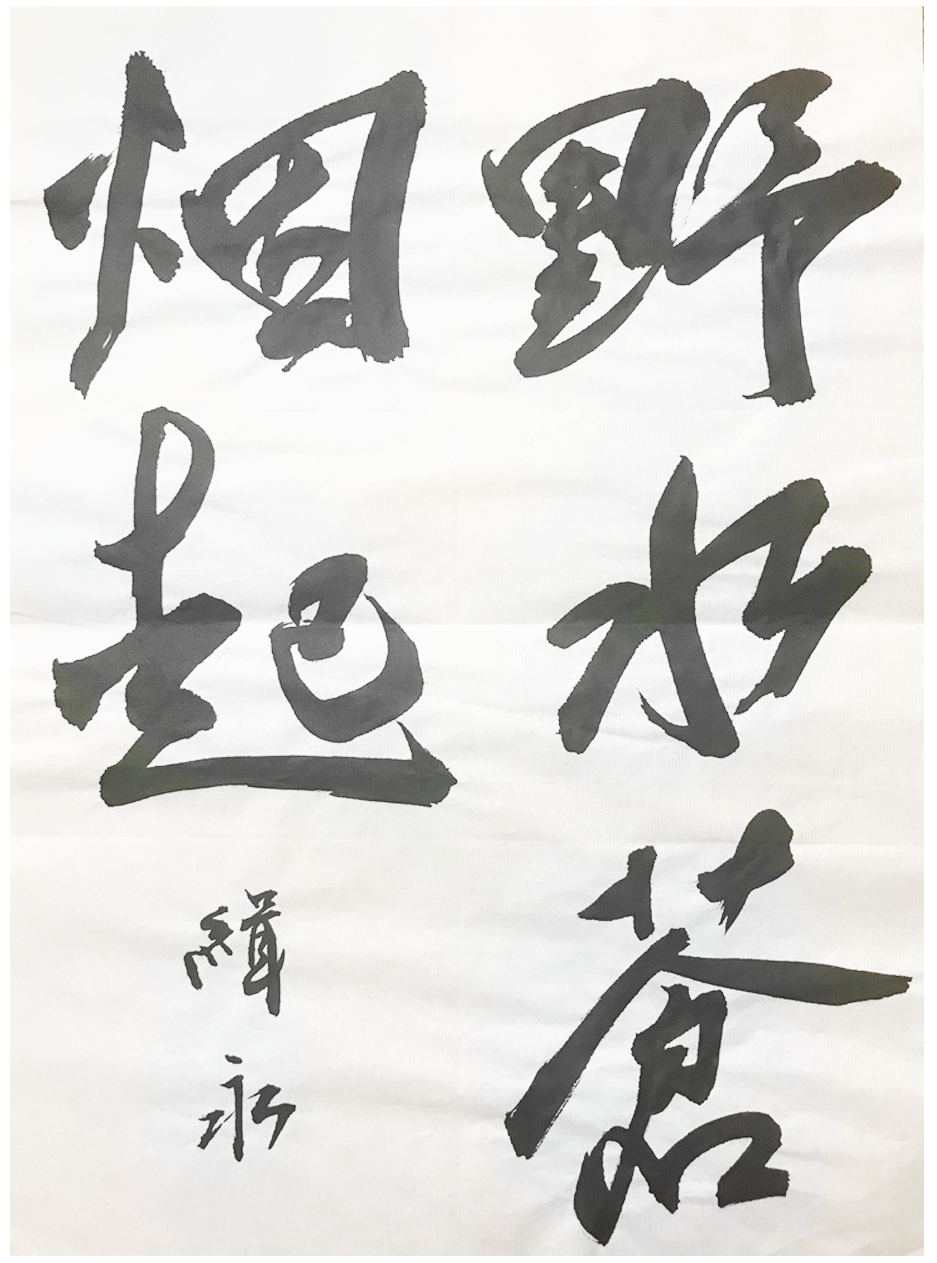 野水蒼
烟起
緝永